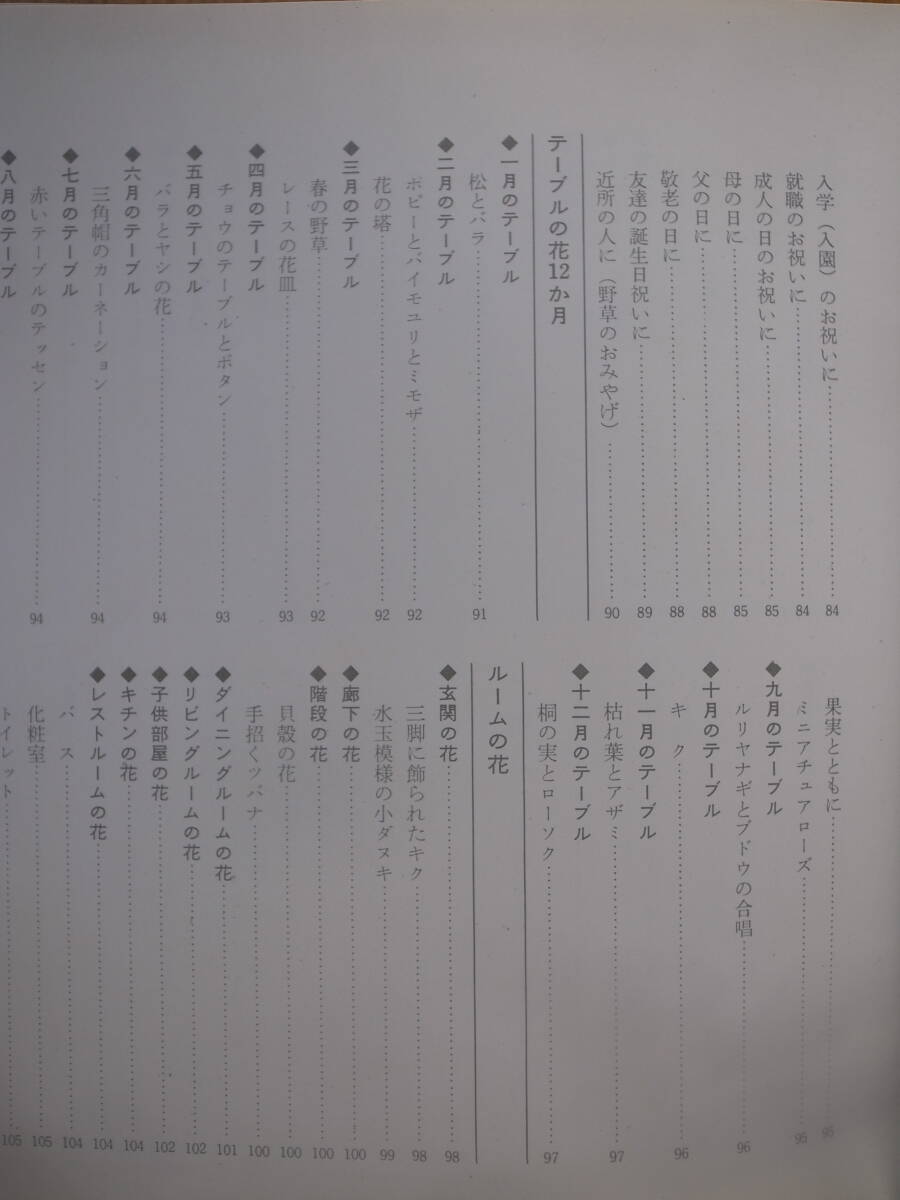 入学（入園）のお祝いに……84
就職のお祝いに……84
成人の日のお祝いに……85
母の日に……85
父の日に……88
敬老の日に……88
友達の誕生日祝いに……89
近所の人に（野草のおみやげ）……90
テーブルの花12か月
◆一月のテーブル
松とバラ……91
◆二月のテーブル
ポピーとバイモユリとミモザ……92
花の塔……92
◆三月のテーブル
春の野草……92
レースの花皿……93
◆四月のテーブル
チョウのテーブルとボタン……93
◆五月のテーブル
バラとヤシの花……94
◆六月のテーブル
三角帽のカーネーション……94
◆七月のテーブル
赤いテーブルのテッセン……94
◆八月のテーブル
果実とともに……95
ミニアチュアローズ……95
◆九月のテーブル
ルリヤナギとブドウの合唱……96
◆十月のテーブル
キク……96
◆十一月のテーブル
枯れ葉とアザミ……97
◆十二月のテーブル
桐の実とローソク……97
ルームの花
◆玄関の花……98
三脚に飾られたキク……98
水玉模様の小ダヌキ……99
◆廊下の花……100
◆階段の花……100
貝殻の花……100
手招くツバナ……100
◆ダイニングルームの花……101
◆リビングルームの花……102
◆子供部屋の花……102
◆キチンの花……104
◆レストルームの花……104
バス……104
化粧室……105
トイレット……105